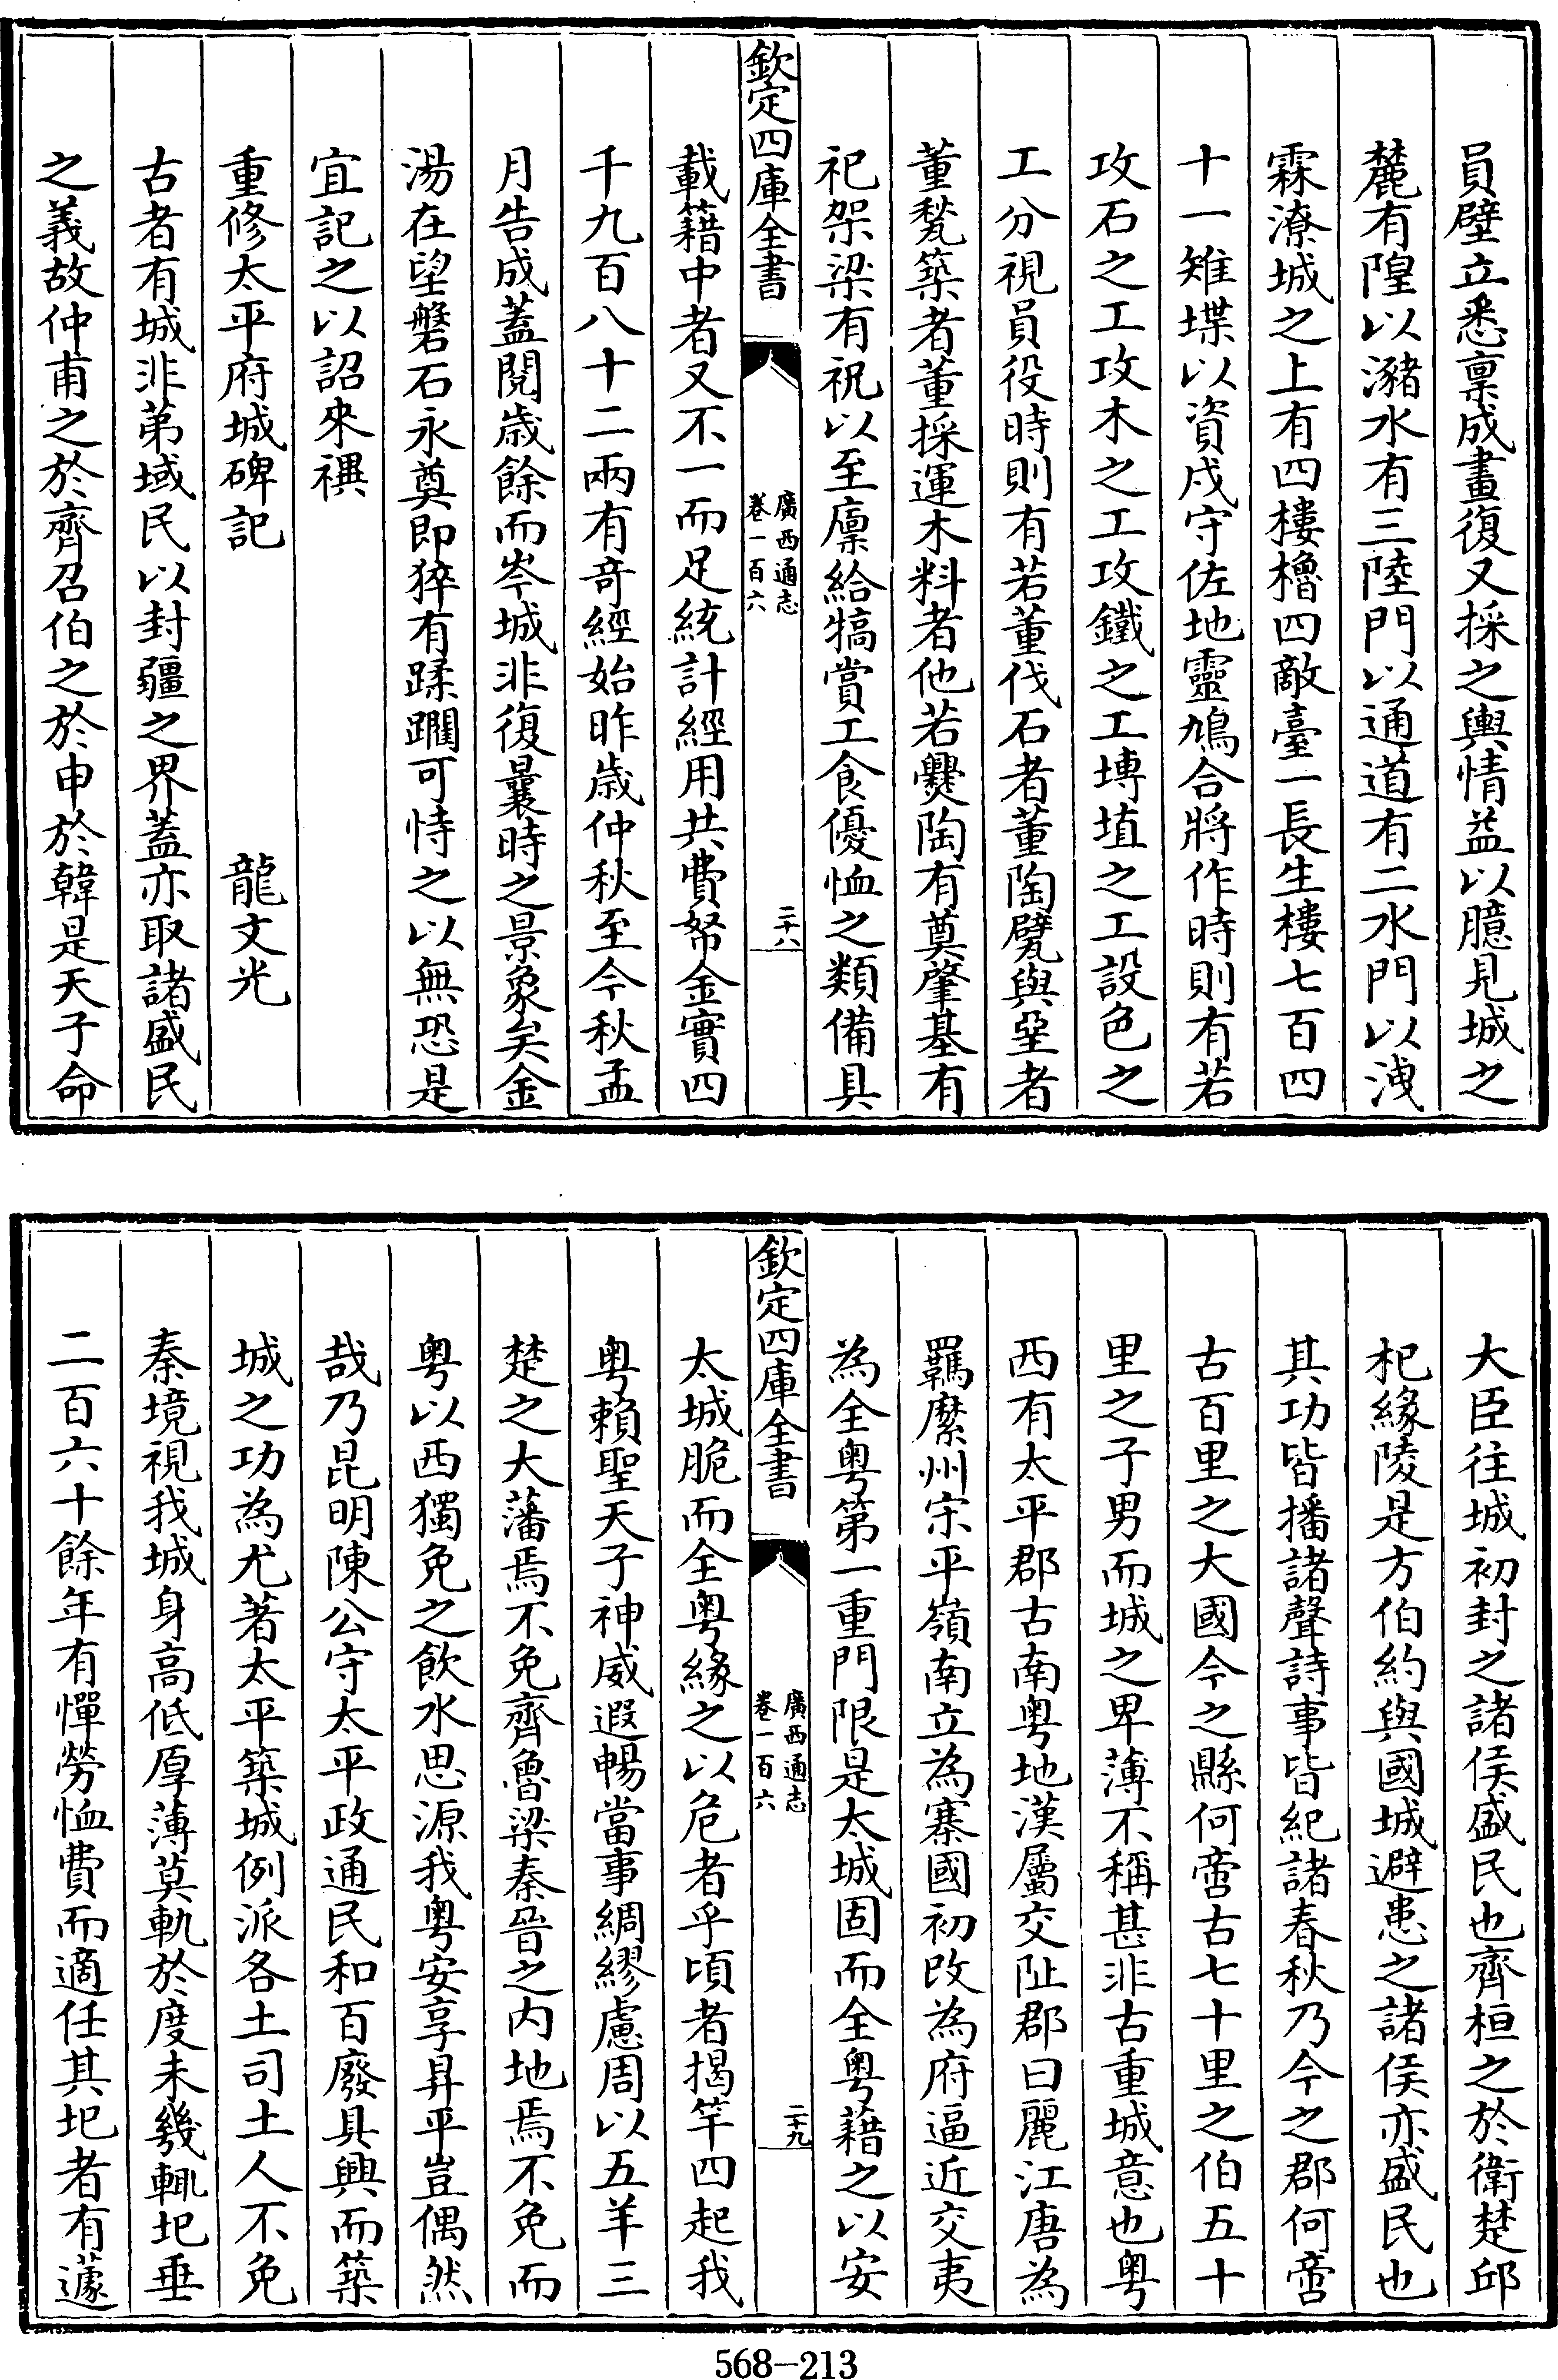 員壁立悉稟成畫復又採之輿情益以臆見城之
麓有隍以瀦水有三陸門以通道有二水門以洩
霖潦城之上有四樓櫓四敵臺一長生樓七百四
十一雉堞以資戍守佐地靈鳩合將作時則有若
攻石之工攻木之工攻鐵之工摶埴之工設色之
工分視員役時則有若董伐石者董陶甓與堊者
董甃築者董採運木料者他若爨陶有奠肇基有
祀架梁有祝以至廩給犒賞工食優恤之類備具
欽定四庫全書
廣西通志
卷一百六
二十八
載籍中者又不一而足統計經用共費帑金實四
千九百八十二兩有奇經始昨歲仲秋至今秋孟
月告成蓋閱歲餘而岑城非復曩時之景象矣金
湯在望磐石永奠即猝有蹂躙可恃之以無恐是
宜記之以詔來禩
重修太平府城碑記 龍文光
古者有城非苐域民以封疆之界蓋亦取諸盛民
之義故仲甫之於齊召伯之於申於韓是天子命
大臣往城初封之諸侯盛民也齊桓之於衛楚邱
杞緣陵是方伯約與國城避患之諸侯亦盛民也
其功皆播諸聲詩事皆紀諸春秋乃今之郡何啻
古百里之大國今之縣何啻古七十里之伯五十
里之子男而城之卑薄不稱甚非古重城意也粤
西有太平郡古南粤地漢屬交阯郡曰麗江唐為
羈縻州宋平嶺南立為寨國初改為府逼近交夷
為全粤第一重門限是太城固而全粤藉之以安
欽定四庫全書
廣西通志
卷一百六
二十九
太城脆而全粤緣之以危者乎頃者揭竿四起我
粤賴聖天子神威遐暢當事綢繆慮周以五羊三
楚之大藩焉不免齊魯梁秦晉之内地焉不免而
粤以西獨免之飲水思源我粤安享昇平豈偶然
哉乃昆明陳公守太平政通民和百廢具興而築
城之功為尤著太平築城例派各土司土人不免
秦境視我城身高低厚薄莫軌於度未幾輒圯垂
二百六十餘年有憚勞恤費而適任其圯者有蘧
568-213